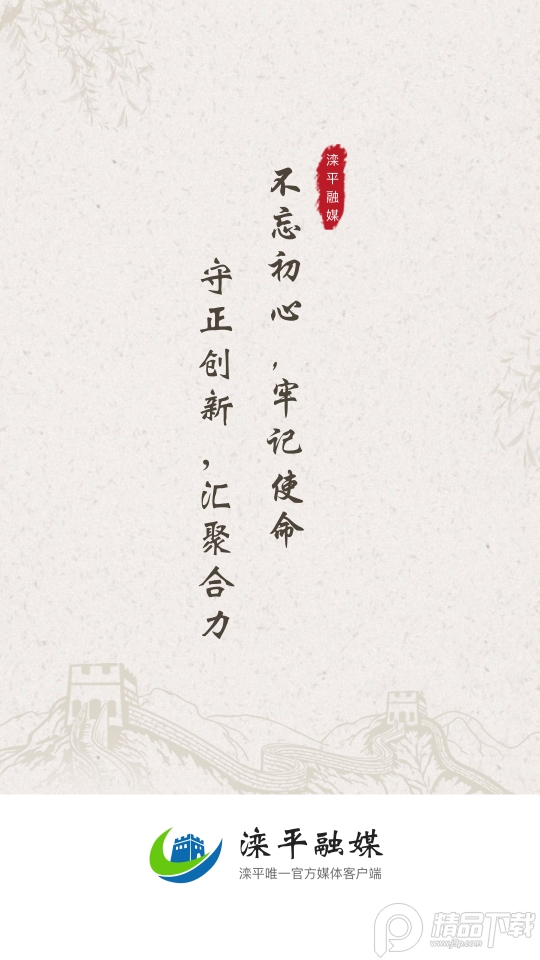 滦平融媒
不忘初心,牢记使命
守正创新,汇聚合力
滦平融媒
滦平唯一官方媒体客户端
精品下载
www.j9p.com